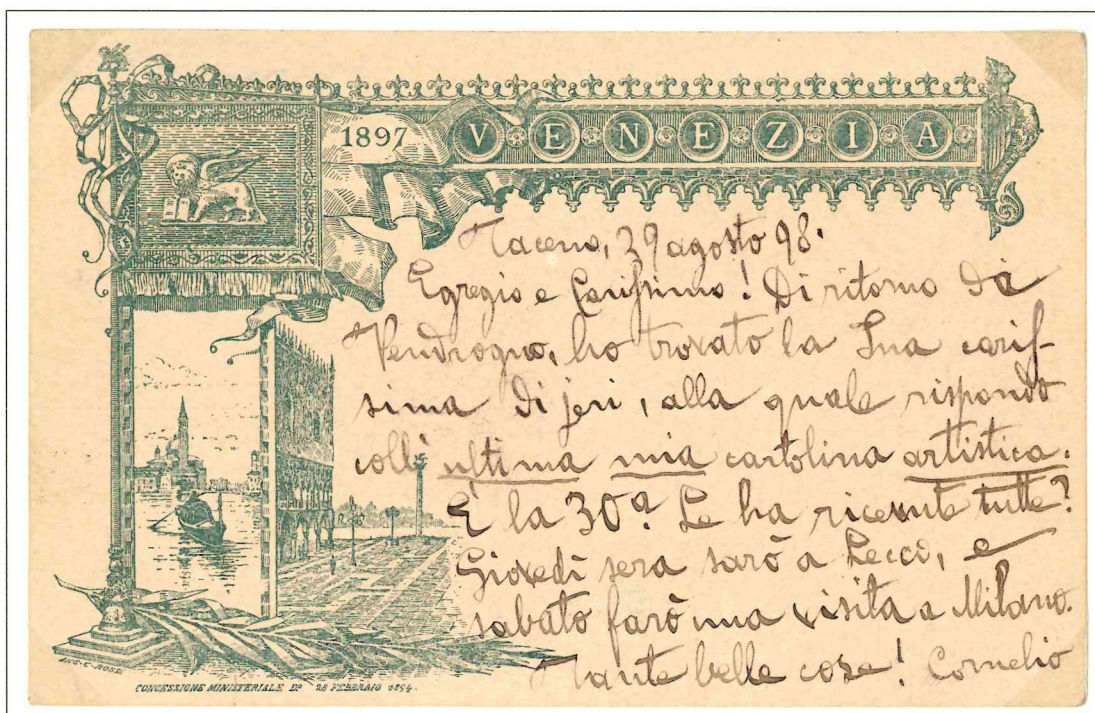 1897 VENEZIA
Taceno, 29 agosto 98.
Egregio e Carissimo! Di ritorno da
Vendrogno, ho trovato la Sua caris-
sima di jeri, alla quale rispondo
coll' ultima mia cartolina artistica.
È la 30ª. Le ha ricevute tutte?
Giovedì sera sarò a Lecco, e
sabato farò una visita a Milano.
Tante belle cose! Cornelio
CONCESSIONE MINISTERIALE Dº 26 FEBBRAIO 1894.